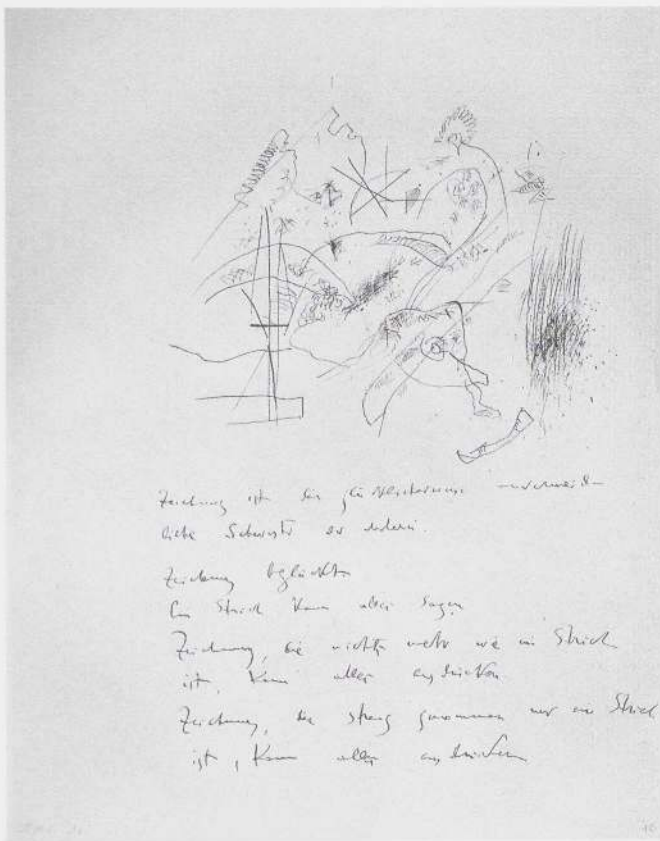 Zeichnung ist die
liebe Schwester der
Zeichnung beglückt
Ein Strich kann alles sagen
Zeichnung, die nichts mehr wie ein Strich
ist, kann alles ausdrücken
Zeichnung, die streng genommen nur ein Strich
ist, kann alles ausdrücken